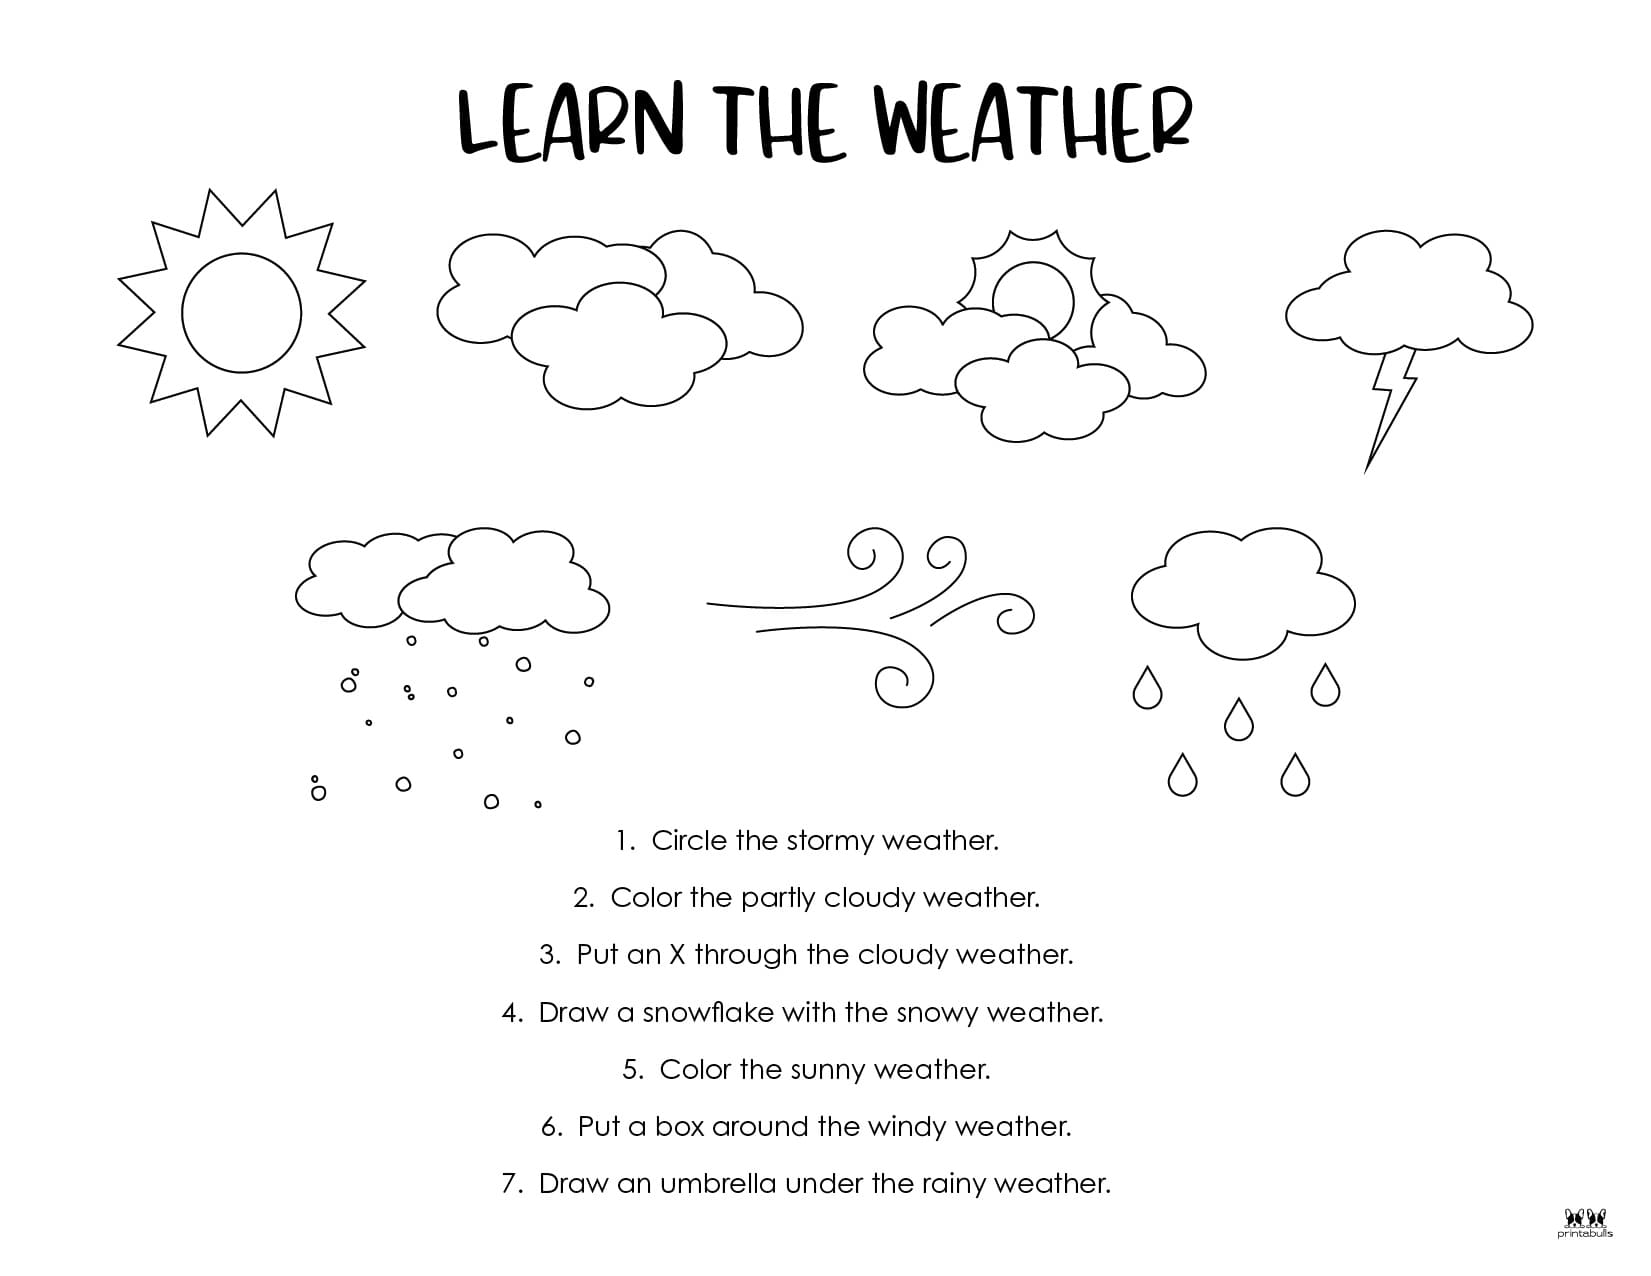 LEARN THE WEATHER
1. Circle the stormy weather.
2. Color the partly cloudy weather.
3. Put an X through the cloudy weather.
4. Draw a snowflake with the snowy weather.
5. Color the sunny weather.
6. Put a box around the windy weather.
7. Draw an umbrella under the rainy weather.
printabulls